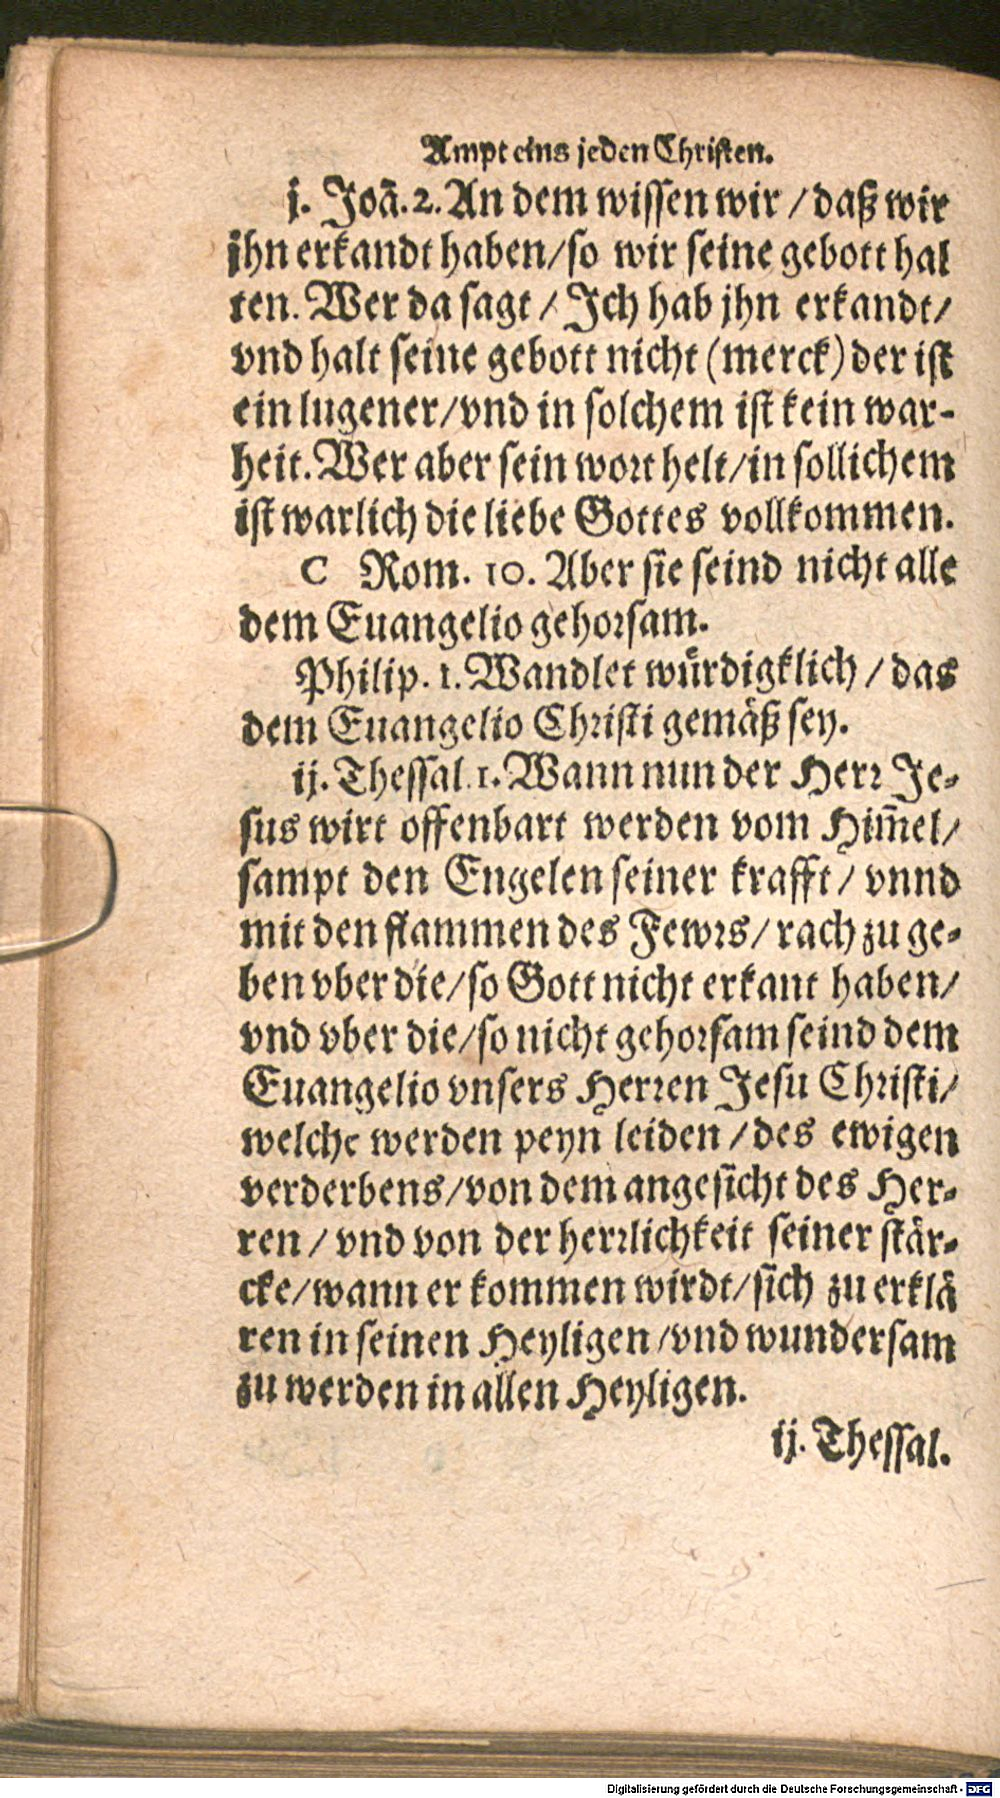 Ampt eins jeden Christen.
j. Joã. 2. An dem wissen wir / daß wir
jhn erkandt haben/so wir seine gebott hal
ten. Wer da sagt / Ich hab jhn erkandt/
vnd halt seine gebott nicht (merck) der ist
ein lugener/vnd in solchem ist kein war-
heit. Wer aber sein wort helt/in sollichem
ist warlich die liebe Gottes vollkommen.
C Rom. 10. Aber sie seind nicht alle
dem Euangelio gehorsam.
Philip. 1. Wandlet würdigklich / das
dem Euangelio Christi gemäß sey.
ij. Thessal. 1. Wann nun der Herr Je-
sus wirt offenbart werden vom Him̃el/
sampt den Engelen seiner krafft / vnnd
mit den flammen des Fewrs/ rach zu ge-
ben vber die/so Gott nicht erkant haben/
vnd vber die/so nicht gehorsam seind dem
Euangelio vnsers Herren Jesu Christi/
welche werden peyn leiden / des ewigen
verderbens/von dem angesicht des Her-
ren / vnd von der herrlichkeit seiner stär-
cke/wann er kommen wirdt/sich zu erklä
ren in seinen Heyligen /vnd wundersam
zu werden in allen Heyligen.
ij. Thessal.
Digitalisierung gefördert durch die Deutsche Forschungsgemeinschaft - DFG